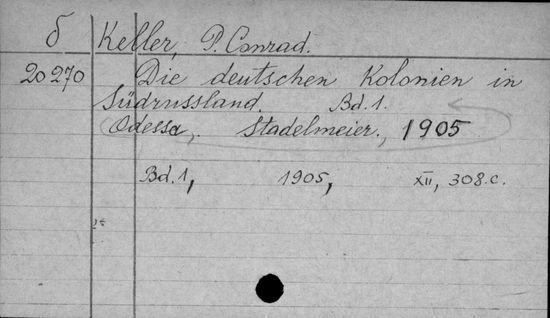 б Keller, P. Conrad.
20 270 Die deutschen Kolonien in
Südrussland. Bd. 1.
Odessa, Stadelmeier, 1905
Bd. 1, 1905, XII, 308 c.